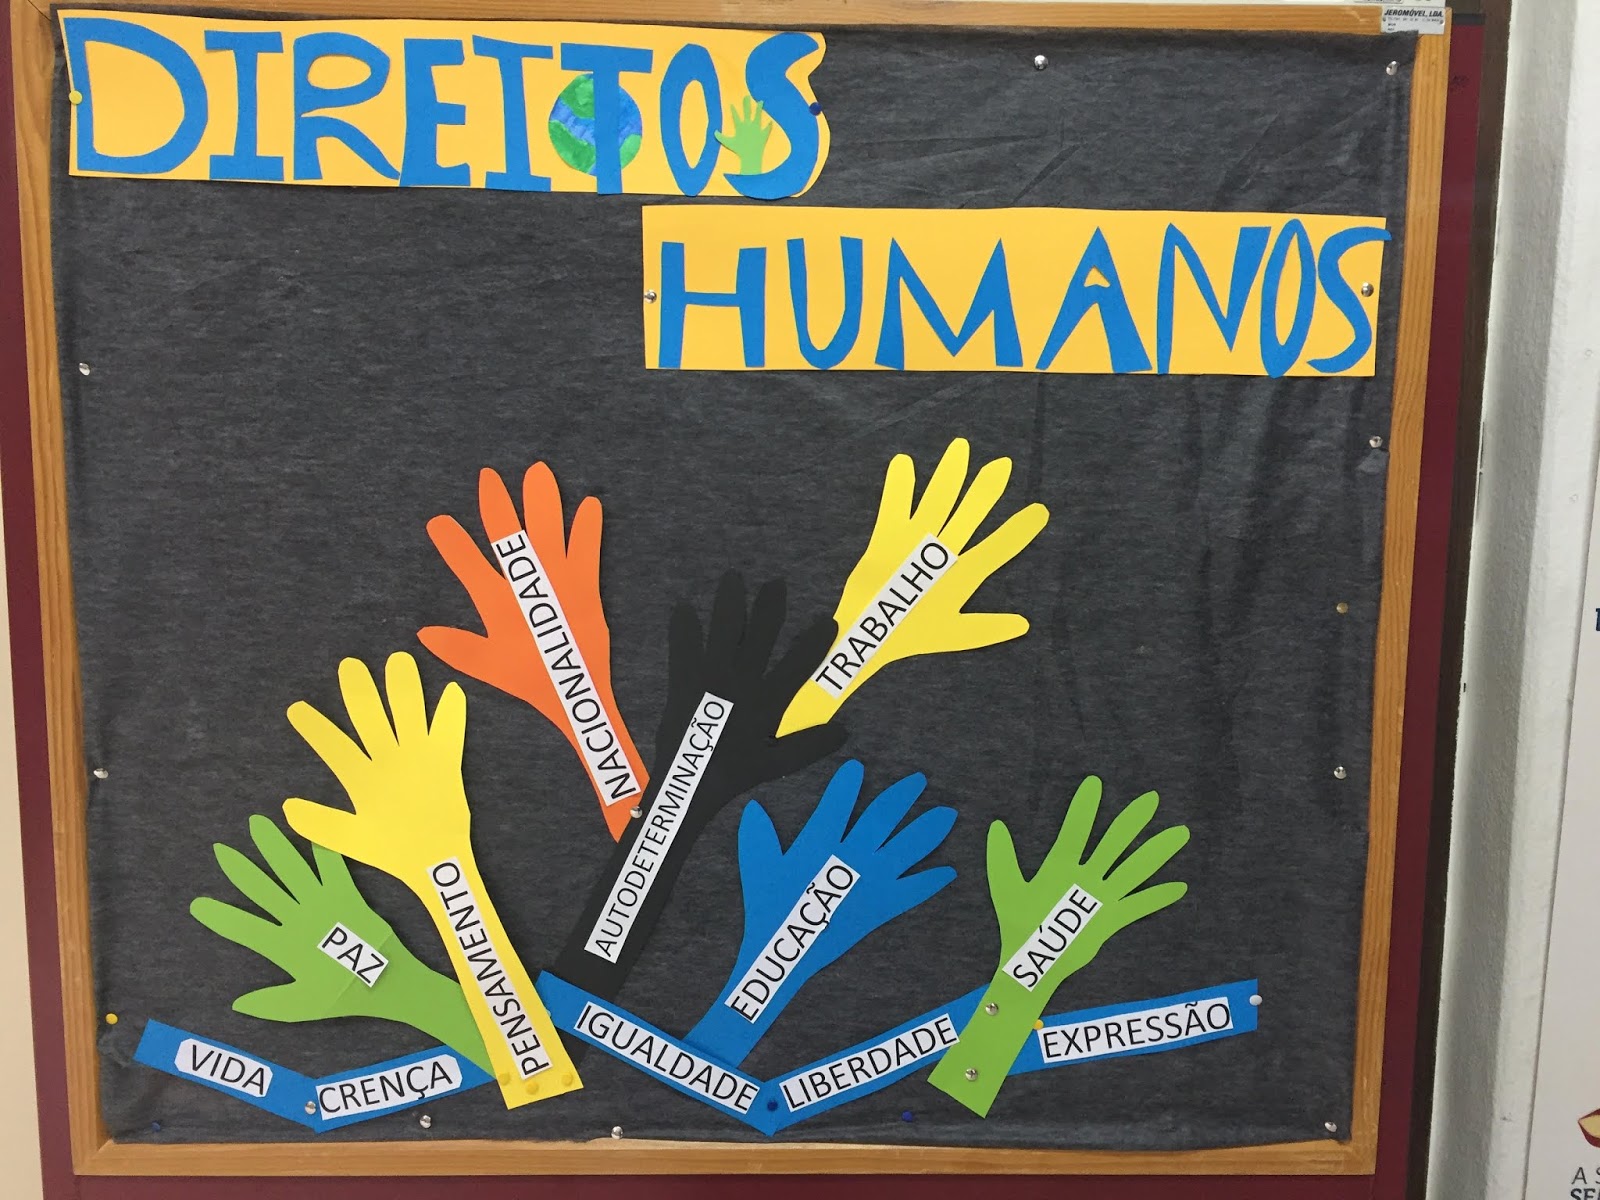 DIREITOS
HUMANOS
NACIONALIDADE
TRABALHO
AUTODETERMINAÇÃO
PENSAMENTO
PAZ
EDUCAÇÃO
SAÚDE
VIDA
CRENÇA
IGUALDADE
LIBERDADE
EXPRESSÃO
JEROMÓVEL, LDA.
A S
SE